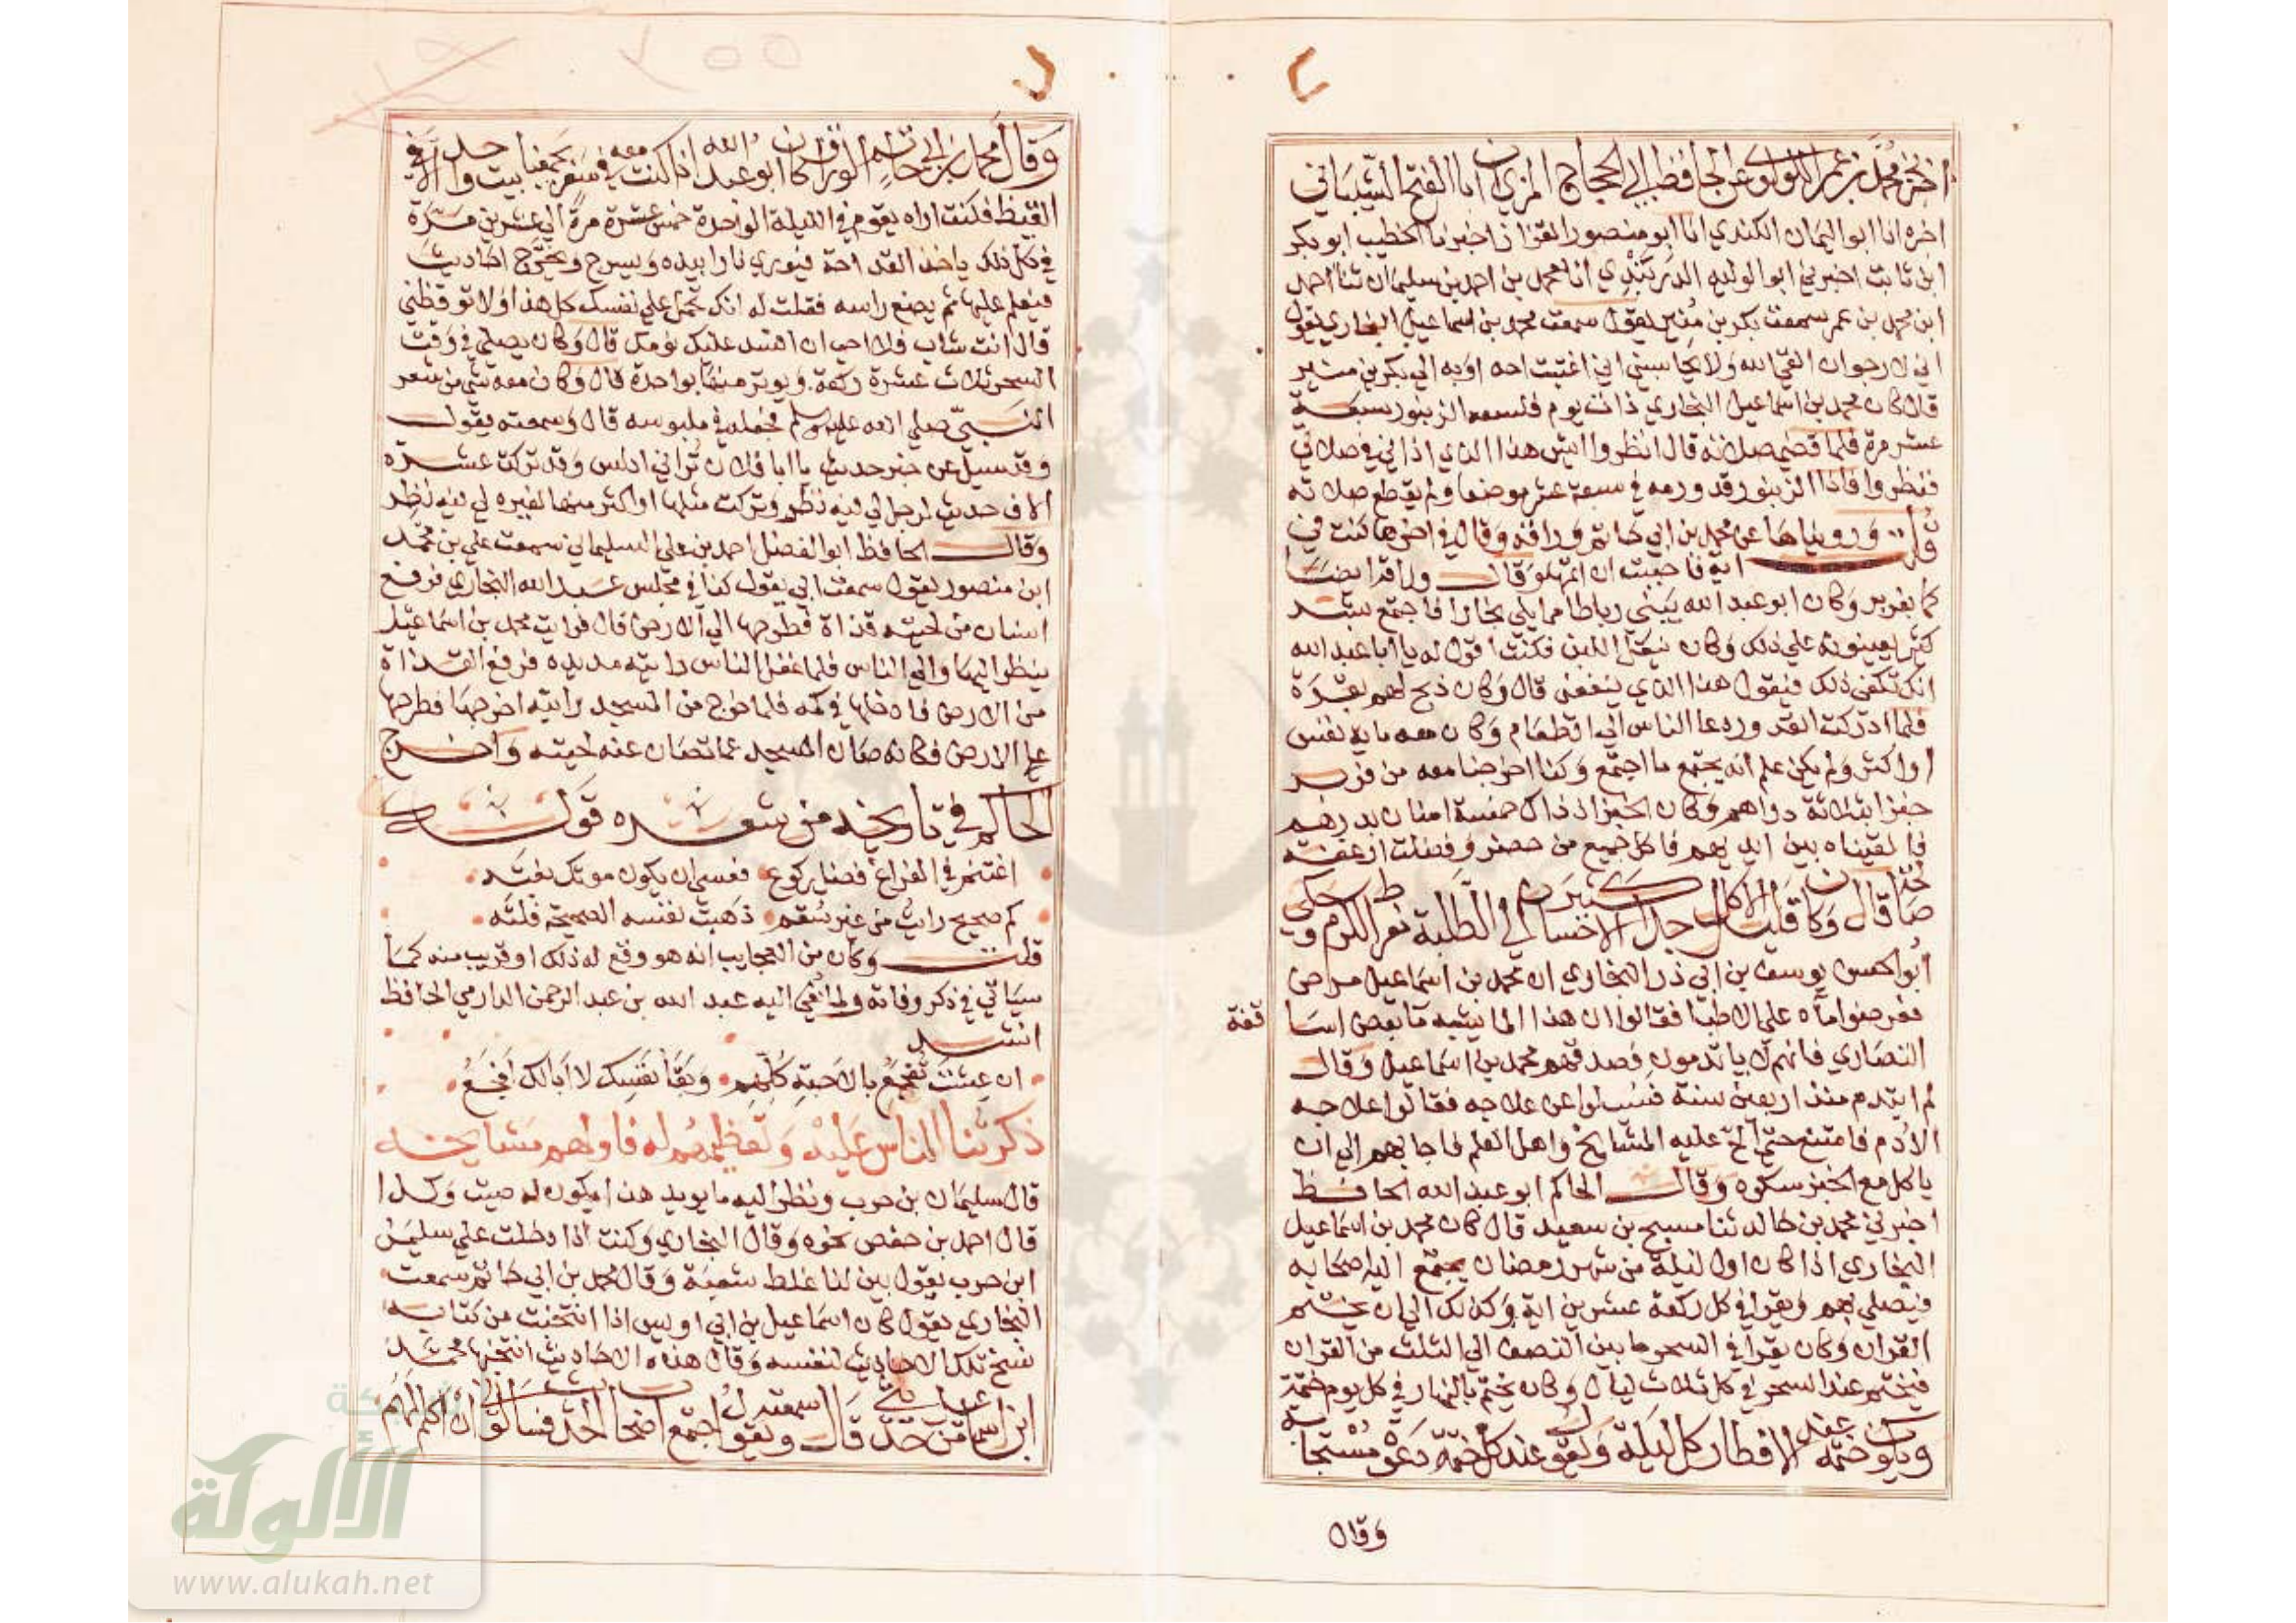 اخبرني محمد بن عمر اللولوي عن الحافظ ابي الحجاج المزي ان ابا الفتح الشيباني
اخبره انا ابو اليمان الكندي انا ابو منصور القزاز اخبرنا الخطيب ابو بكر
ابن ثابت اخبرني ابو الوليد الدربندي انا محمد بن احمد بن سليمان ثنا احمد
ابن محمد بن عمر سمعت بكر بن منير يقول سمعت محمد بن اسماعيل البخاري يقول
اني لارجو ان القي الله ولا يحاسبني اني اغتبت احدا وبه الي بكر بن منير
قال كان محمد بن اسماعيل البخاري ذات يوم فلسعه الزنبور سبعة
عشر مرة فلما قضي صلاته قال انظروا ايش هذا الذي اذاني في صلاتي
فنظروا فاذا الزنبور قد ورمه في سبعة عشر موضعا ولم يقطع صلاته
قلت ورويناها عن محمد بن ابي حاتم وراقه وقال في اخرها كنت في
اية فاحببت ان اتمها وقال وراقه ايضا
كنا بفربر وكان ابو عبد الله يبني رباطا مما يلي بخارا فاجتمع بشر
كثير يعينونه علي ذلك وكان ينقل اللبن فكنت اقول له يا ابا عبد الله
انك تكفي ذلك فيقول هذا الذي ينفعني قال وكان ذبح لهم بقرة
فلما ادركت القدور دعا الناس الي الطعام وكان معه ماية نفس
او اكثر ولم يكن علم انه يجتمع ما اجتمع وكنا اخرجنا معه من فربر
خبزا بثلاثة دراهم وكان الخبز اذ ذاك خمسة امنان بدرهم
فالقيناه بين ايديهم فاكل جميع من حضر وفضلت ارغفة
صالحة قال وكان قليل الاكل جدا كثير الاحسان الي الطلبة مفرط الكرم وحكي
ابو الحسن يوسف بن ابي ذر البخاري ان محمد بن اسماعيل مرض
فعرضوا ماه علي الاطبا فقالوا ان هذا الما يشبه ما بعض اسا
قفة
النصاري فانهم لا ياتدمون فصدقهم محمد بن اسماعيل وقال
لم ايتدم منذ اربعين سنة فسيلوا عن علاجه فقالوا علاجه
الادم فامتنع حتي الح عليه المشايخ واهل العلم فاجابهم الي ان
ياكل مع الخبز سكره وقال الحاكم ابو عبد الله الحافظ
اخبرني محمد بن خالد ثنا مسبح بن سعيد قال كان محمد بن اسماعيل
البخاري اذا كان اول ليلة من شهر رمضان يجتمع اليه اصحابه
فيصلي بهم ويقرا في كل ركعة عشرين اية وكذلك الي ان يختم
القران وكان يقرا في السحر ما بين النصف الي الثلث من القران
فيختم عند السحر في كل ثلاث ليال وكان يختم بالنهار في كل يوم ختمة
ويكون ختمه عند الافطار كل ليلة ويقول عند كل ختمة دعوة مستجابة
وقال
وقال محمد بن ابي حاتم الوراق كان ابو عبد الله اذا كنت معه في سفر يجمعنا بيت واحد الا في
القيظ فكنت اراه يقوم في الليلة الواحدة خمس عشرة مرة الي عشرين مرة
في كل ذلك ياخذ القداحة فيوري نارا بيده ويسرج ويخرج احاديث
فيعلم عليها ثم يضع راسه فقلت له انك تحمل علي نفسك كل هذا ولا توقظني
قال انت شاب فلا احب ان افسد عليك نومك قال وكان يصلي في وقت
السحر ثلاث عشرة ركعة ويوتر منها بواحدة قال وكان معه شي من شعر
النبي صلي الله عليه وسلم فجعله في ملبوسه قال وسمعته يقول
وقد سيل عن خبر حديث يا ابا فلان تراني ادلس وقد تركت عشرة
الاف حديث لرجل لي فيه نظر وتركت مثلها او اكثر منها لغيره لي فيه نظر
وقال الحافظ ابو الفضل احمد بن علي السليماني سمعت علي بن محمد
ابن منصور يقول سمعت ابي يقول كنا في مجلس عبد الله البخاري فرفع
انسان من لحيته قذاة فطرحها الي الارض قال فرايت محمد بن اسماعيل
ينظر اليها والي الناس فلما غفل الناس رايته مد يده فرفع القذاة
من الارض فادخلها في كمه فلما خرج من المسجد رايته اخرجها فطرحها
علي الارض فكانه صان المسجد عما تصان عنه لحيته واخرج
الحاكم في تاريخه من شعره قوله
اغتنم في الفراغ فضل ركوع فعسي ان يكون موتك بغته
كم صحيح رايت من غير سقم ذهبت نفسه الصحيحة فلته
قلت وكان من العجايب انه هو وقع له ذلك او قريب منه كما
سياتي في ذكر وفاته ولما نعي اليه عبد الله بن عبد الرحمن الدارمي الحافظ
انشد
ان عشت تفجع بالاحبة كلهم وبقا نفسك لا ابالك افجع
ذكر ثنا الناس عليه وتعظيمهم له فاولهم مشايخه
قال سليمان بن حرب ونظر اليه ما يريد هذا يكون له صيت وكذا
قال احمد بن حفص نحوه وقال البخاري وكنت اذا دخلت علي سليمن
ابن حرب يقول بين لنا غلط شعبة وقال محمد بن ابي حاتم سمعت
البخاري يقول كان اسماعيل بن ابي اويس اذا انتخبت من كتابه
نسخ تلك الاحاديث لنفسه وقال هذه الاحاديث انتخبها محمد
ابن اسماعيل من حديثي قال وسمعته يقول اجتمع اصحاب الحديث فسالوني ان اكلم لهم
شبكة
الألوكة
www.alukah.net